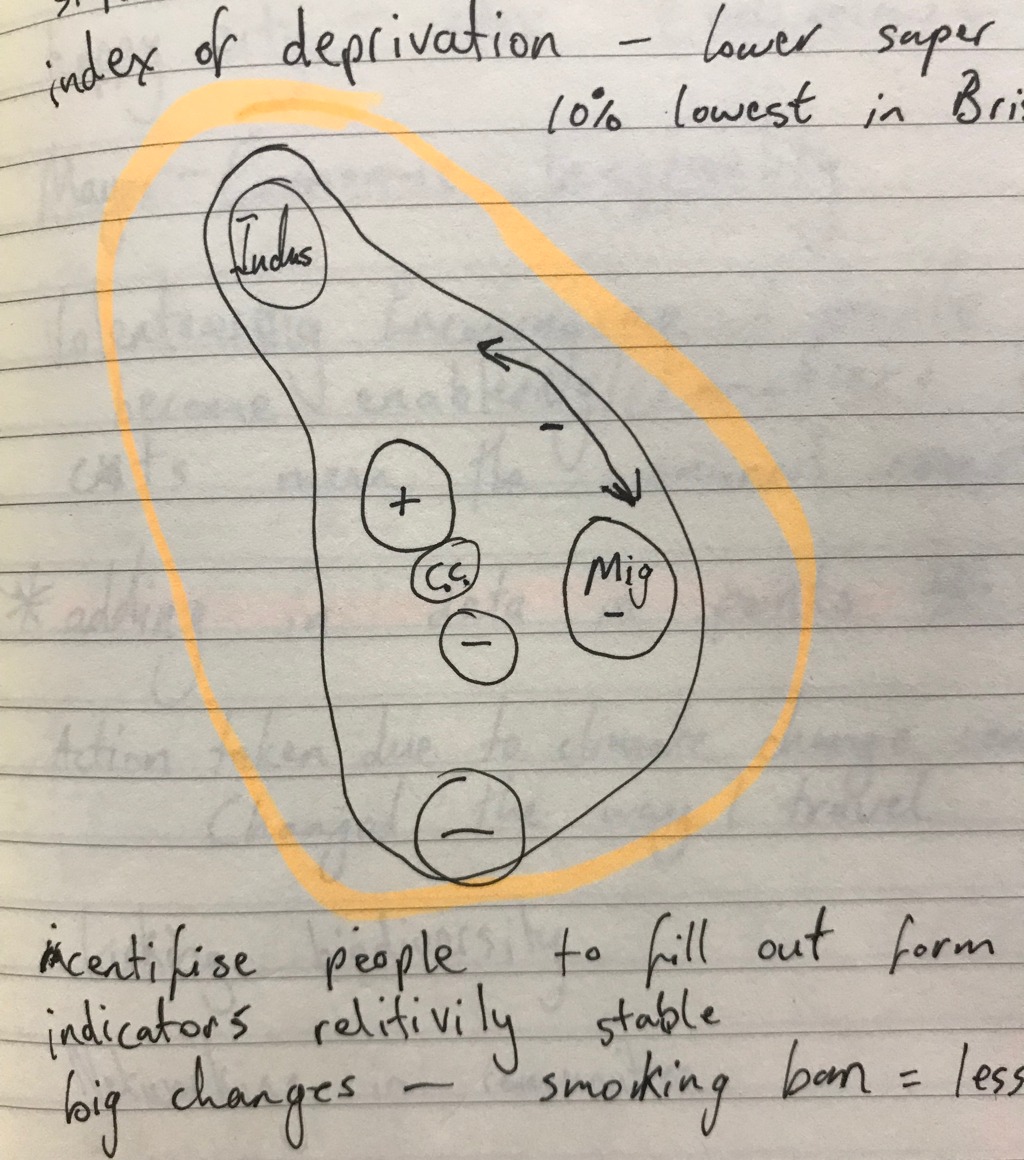 index of deprivation - lower super
10% lowest in Bris
Indus
-
+
C.C.
Mig
-
-
-
incentifise people to fill out form
indicators relitivily stable
big changes - smoking ban = less